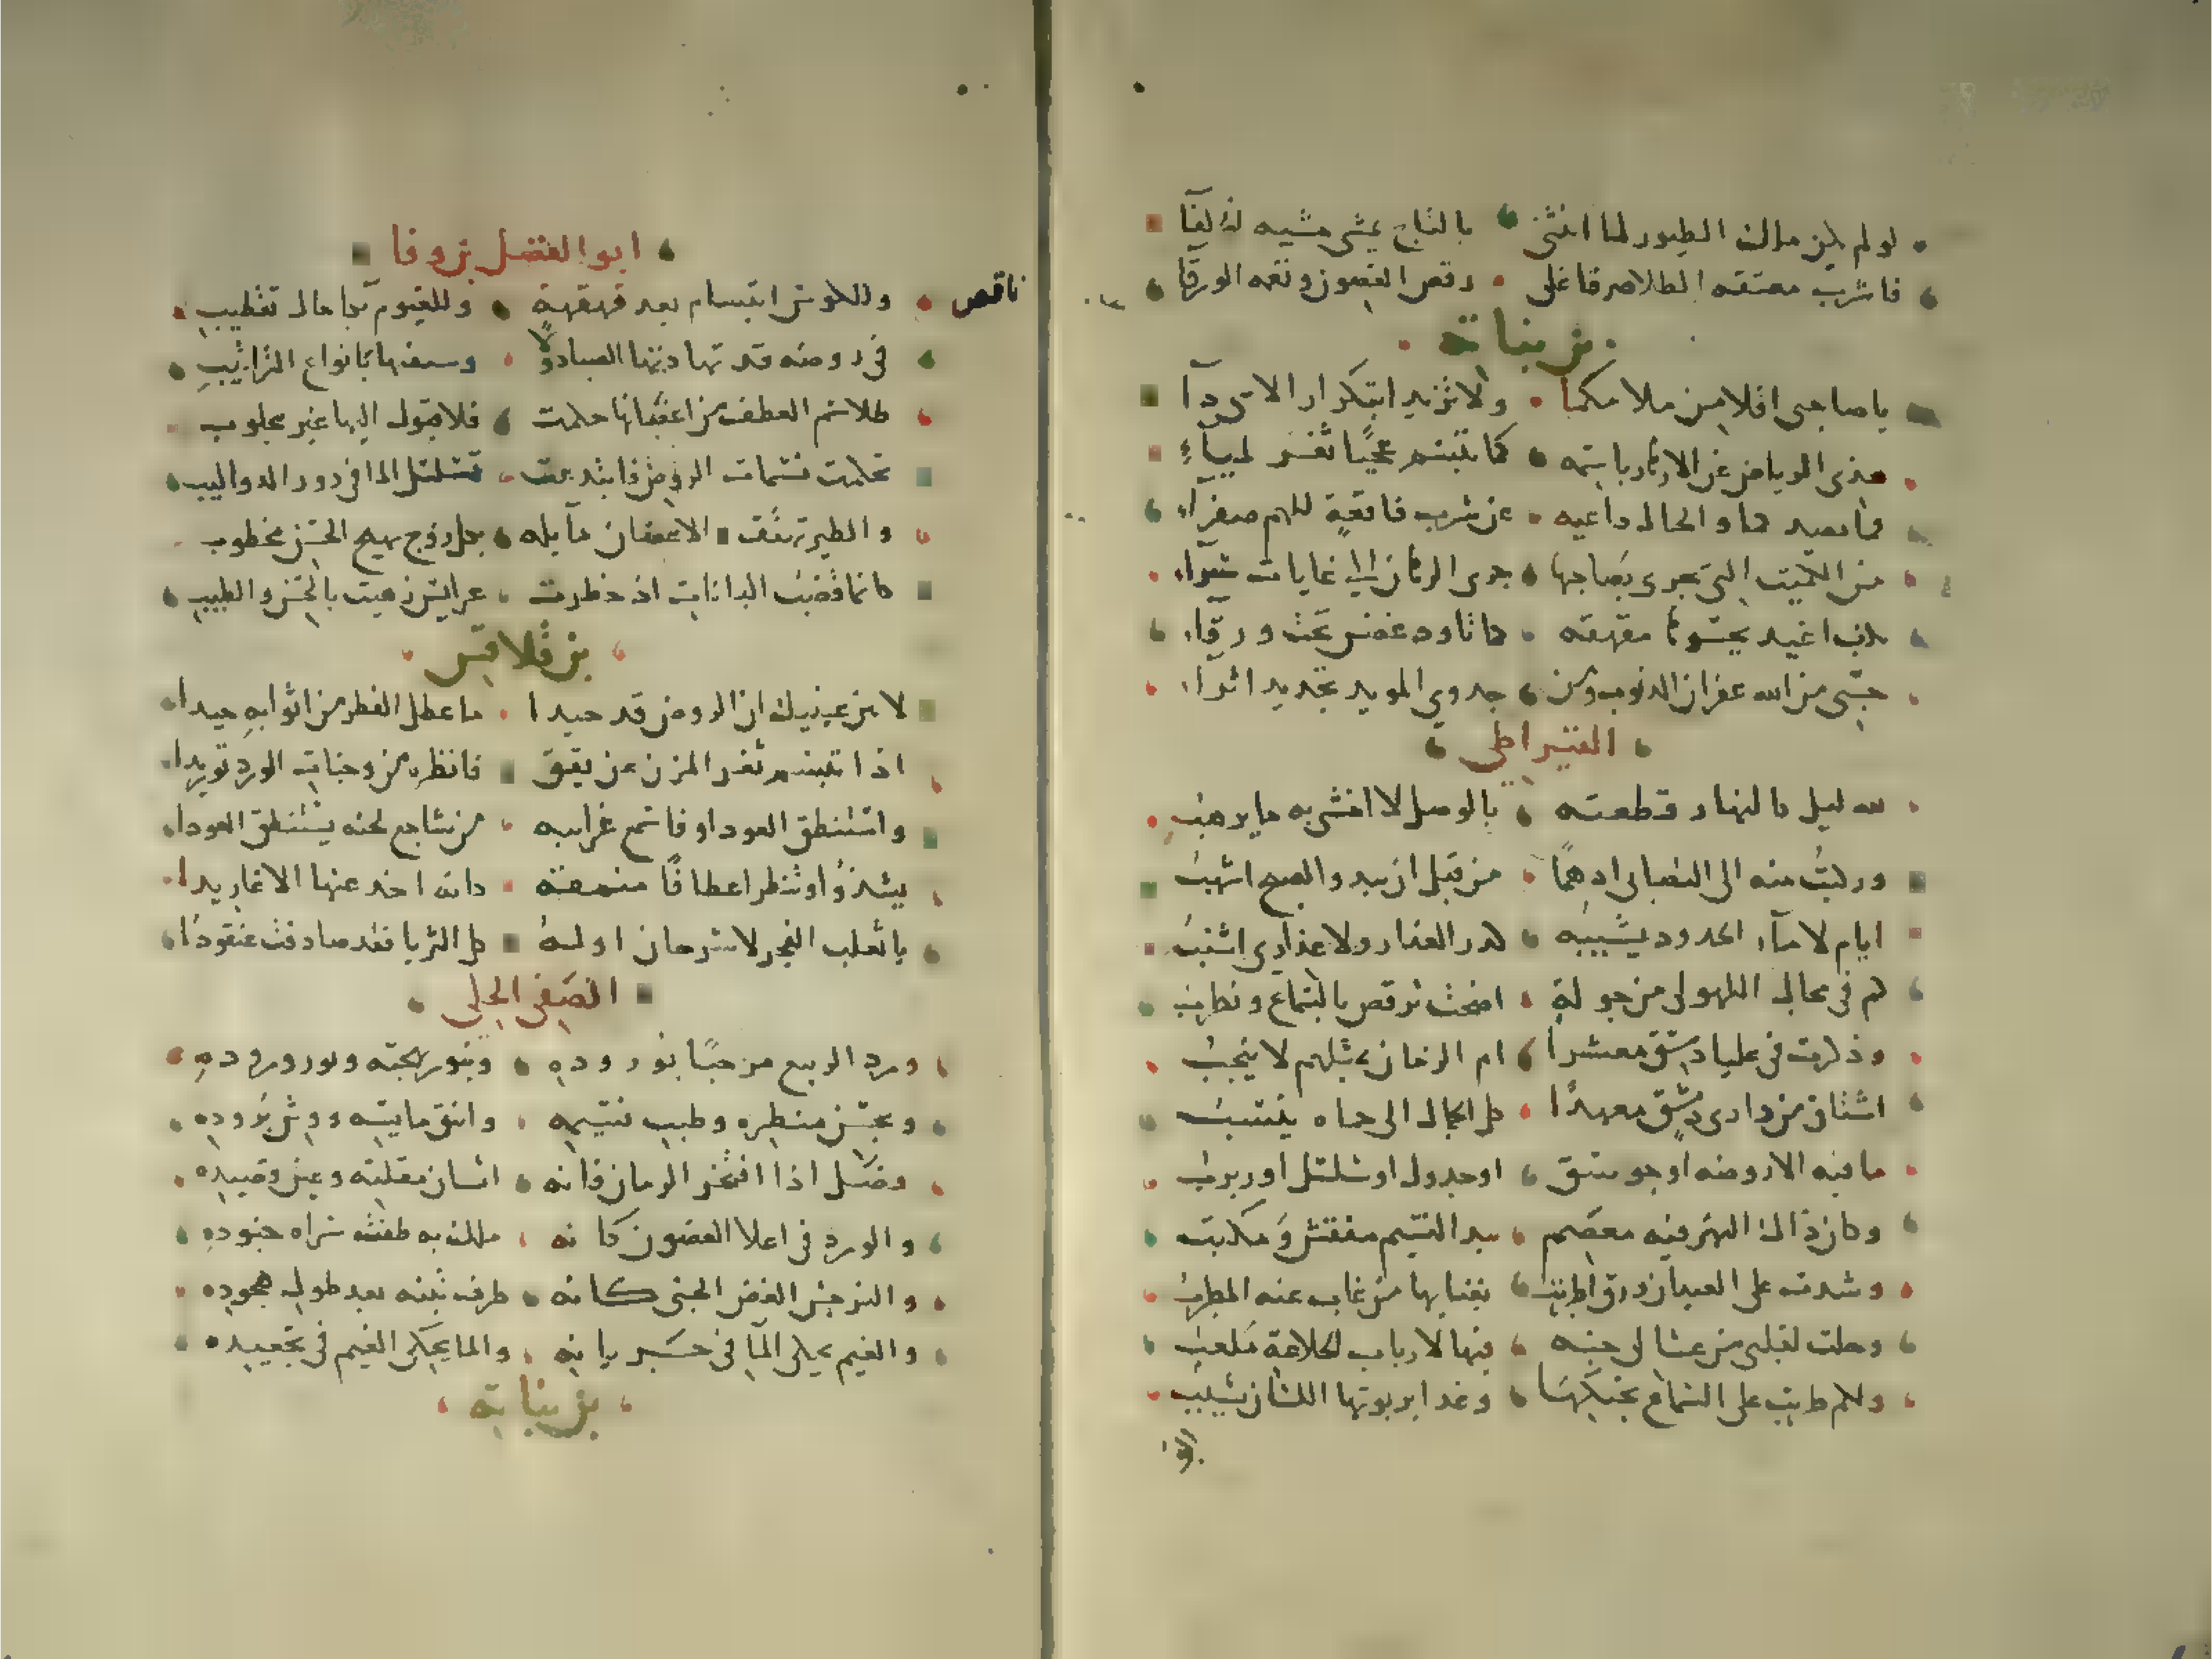 لو لم يكن ملك الطيور لما انثنى بالتاج يمشي مشيه
فاشرب معتقه الطلا صرفا على رقص الغصون ونغمه الورقا
بن نباتة
يا صاحبي اقلا من ملامكما ولا تزيدا بتكرار
هذي الرياض عن الازهار باسمه كما تبسم عجبا ثغر لمياء
عن شرب فاقعة للهم صفراء
من الكميت التي تجري بصاحبها جري الرهان الي غايات سراء
بكف اغيد يحسوها مقهقهه كما تاود غصن تحت ورقاء
حسبي من الله غفران الذنوب ومن جدوي المويد تجديد اثراء
القيراطي
لله ليل كالنهار قطعته بالوصل لا اخشى به ما يرهب
وركبت منه الى التصابي ادهما من قبل ان يبدو الصبح اشهب
ايام لا ماء الخدود يشيبه كدر العذار ولا عذاري اشنب
كم في مجال اللهو لي من جولة اضحت ترقص بالسماع وتطرب
وذكرت في عليا دمشق معشرا ام الزمان بمثلهم لا ينجب
اشتاق من وادي دمشق معهدا كل الجمال الى حماه ينسب
ما فيه الا روضه او جوسق او جدول او بلبل او ربرب
وكان ذاك النهر فيه معصم بيد النسيم منقش ومكتب
وشدت على العيدان ورق اطربت بغنايها من غاب عنه المطرب
وحلت لقلبي من عسال جنه فيها لارباب الخلاعة ملعب
ولكم طربت على السماع بجنكها وغدا بربوتها اللسان يشبب
ابو الفضل بن وفا
ناقص وللكوس ابتسام بعد قهقهة وللغيوم بها حال تقطيب
في روضه قد تهادتها الصبا دولا
فلا قبول اليها غير مجلوب
تحكمت نسمات الروض
والطير الاغصان مايله بكل زوج بهيج الحسن مخطوب
كانما قضب البانات اذ خطرت عرايس زهيت بالحسن والطيب
بن قلاقس
لا من عينيك ان الروض قد جيدا ما عطل القطر من اثوابه جيدا
اذا تبسم ثغر المزن عن يقق فانظره من وجنات الورد توريدا
واستنطق العود او فاسمع غرايبه من ساجع لحنه يستنطق العودا
يشدو او تنظر اعطافا منمقه كانه اخذ عنها الاغاريدا
يا ثعلب الفجر لا سرحان اوله كل الثريا فقد صادفت عنقودا
الصفي الحلي
ورد الربيع مرحبا بوروده وبنور بهجته ونور وروده
وبحسن منظره وطيب نسيمه وانيق ملبسه ووشي بروده
فصل اذا افتخر الزمان فانه انسان مقلته وبيت قصيده
والورد في اعلا الغصون كانه ملك به حفت سراه جنوده
والنرجس الغض الجني كانه طرف تنبه بعد طول هجوده
والغيم يحكي الما في جريانه والما يحكي الغيم في تجعيده
بن نباتة